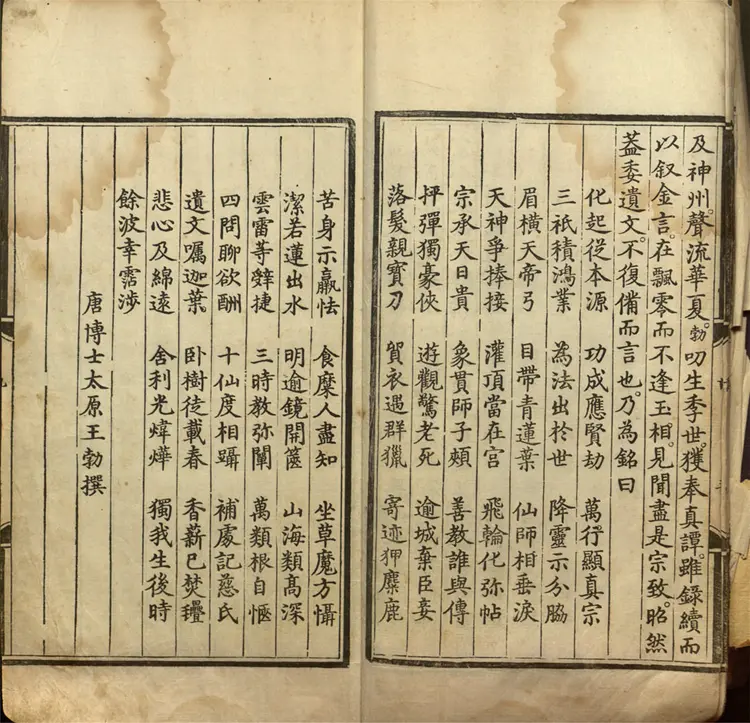 及神州。聲流華夏。勃叨生季世。獲奉真譚。雖錄續而
以叙金言。在飄零而不逢玉相。見聞盡是宗致。昭然
葢委遺文。不復備而言也。乃為銘曰
化起從本源 功成應賢劫 萬行顯真宗
三祇積鴻業 為法出於世 降靈示分脇
眉橫天帝弓 目帶青蓮葉 仙師相垂淚
天神爭捧接 灌頂當在宮 飛輪化弥帖
宗承天日貴 象貫師子頰 善教誰與傳
抨彈獨豪俠 遊觀驚老死 逾城棄臣妾
落髮親寶刀 賀衣遇群獵 寄迹狎麋鹿
苦身示羸怯 食糜人盡知 坐草魔方懾
潔若蓮出水 明逾鏡開篋 山海類高深
雲雷等辯捷 三時教弥闡 萬類根自愜
四問聊欲酬 十仙度相躡 補處記慈氏
遺文囑迦葉 卧樹徒載春 香薪已焚㲲
悲心及綿遠 舍利光煒燁 獨我生後時
餘波幸霑涉
唐博士太原王勃撰